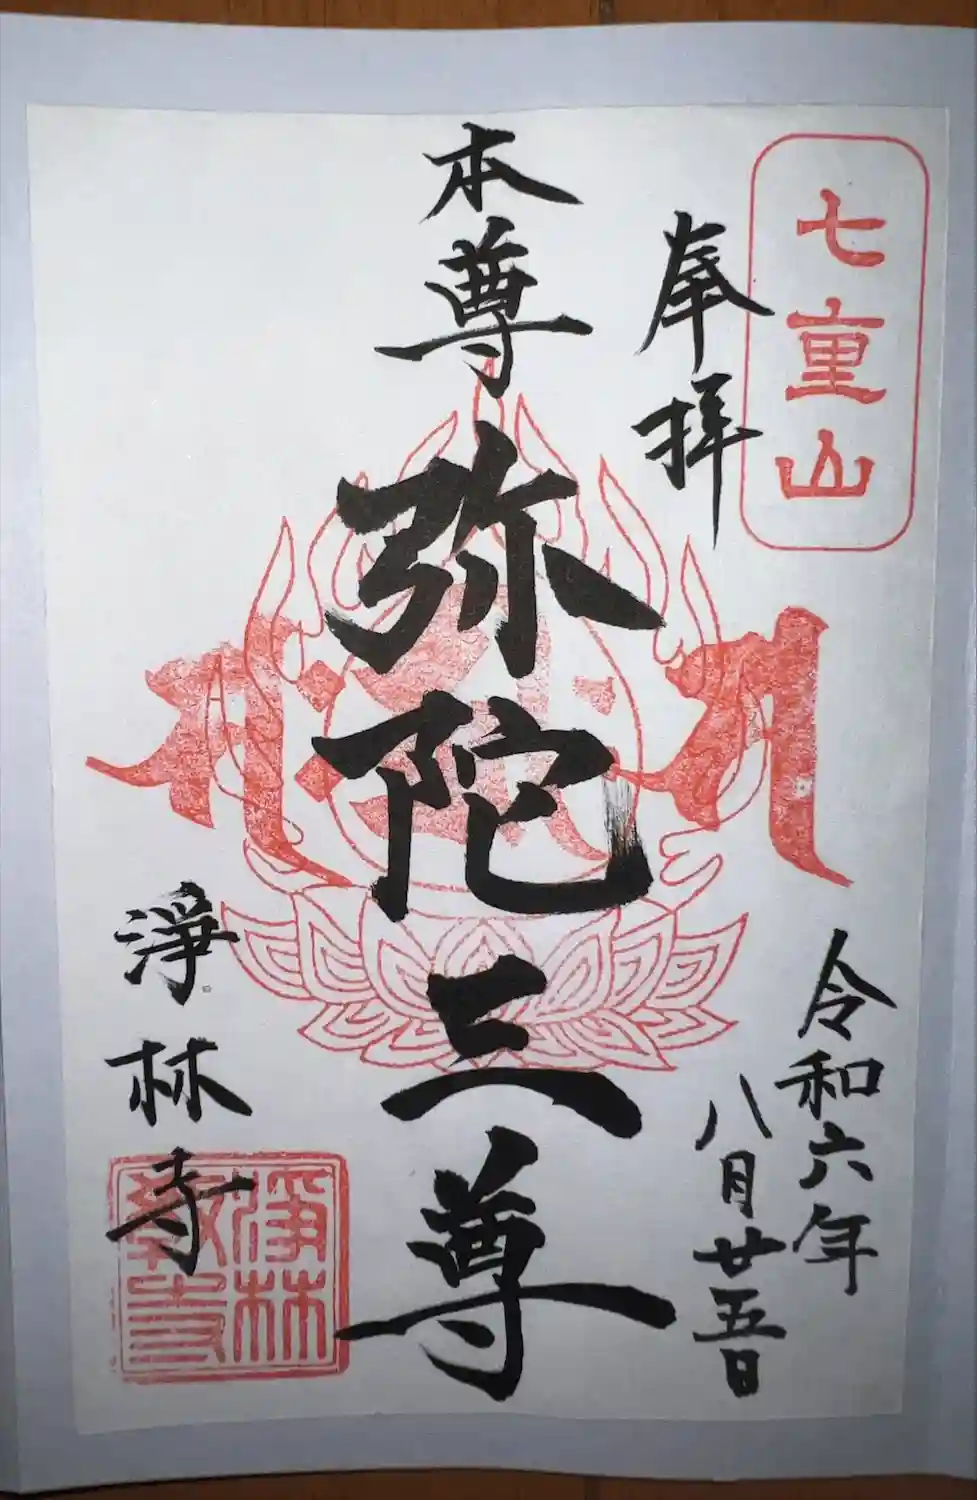 七重山
奉拝
令和六年
八月廿五日
本尊
弥陀三尊
淨林寺
淨林
教寺